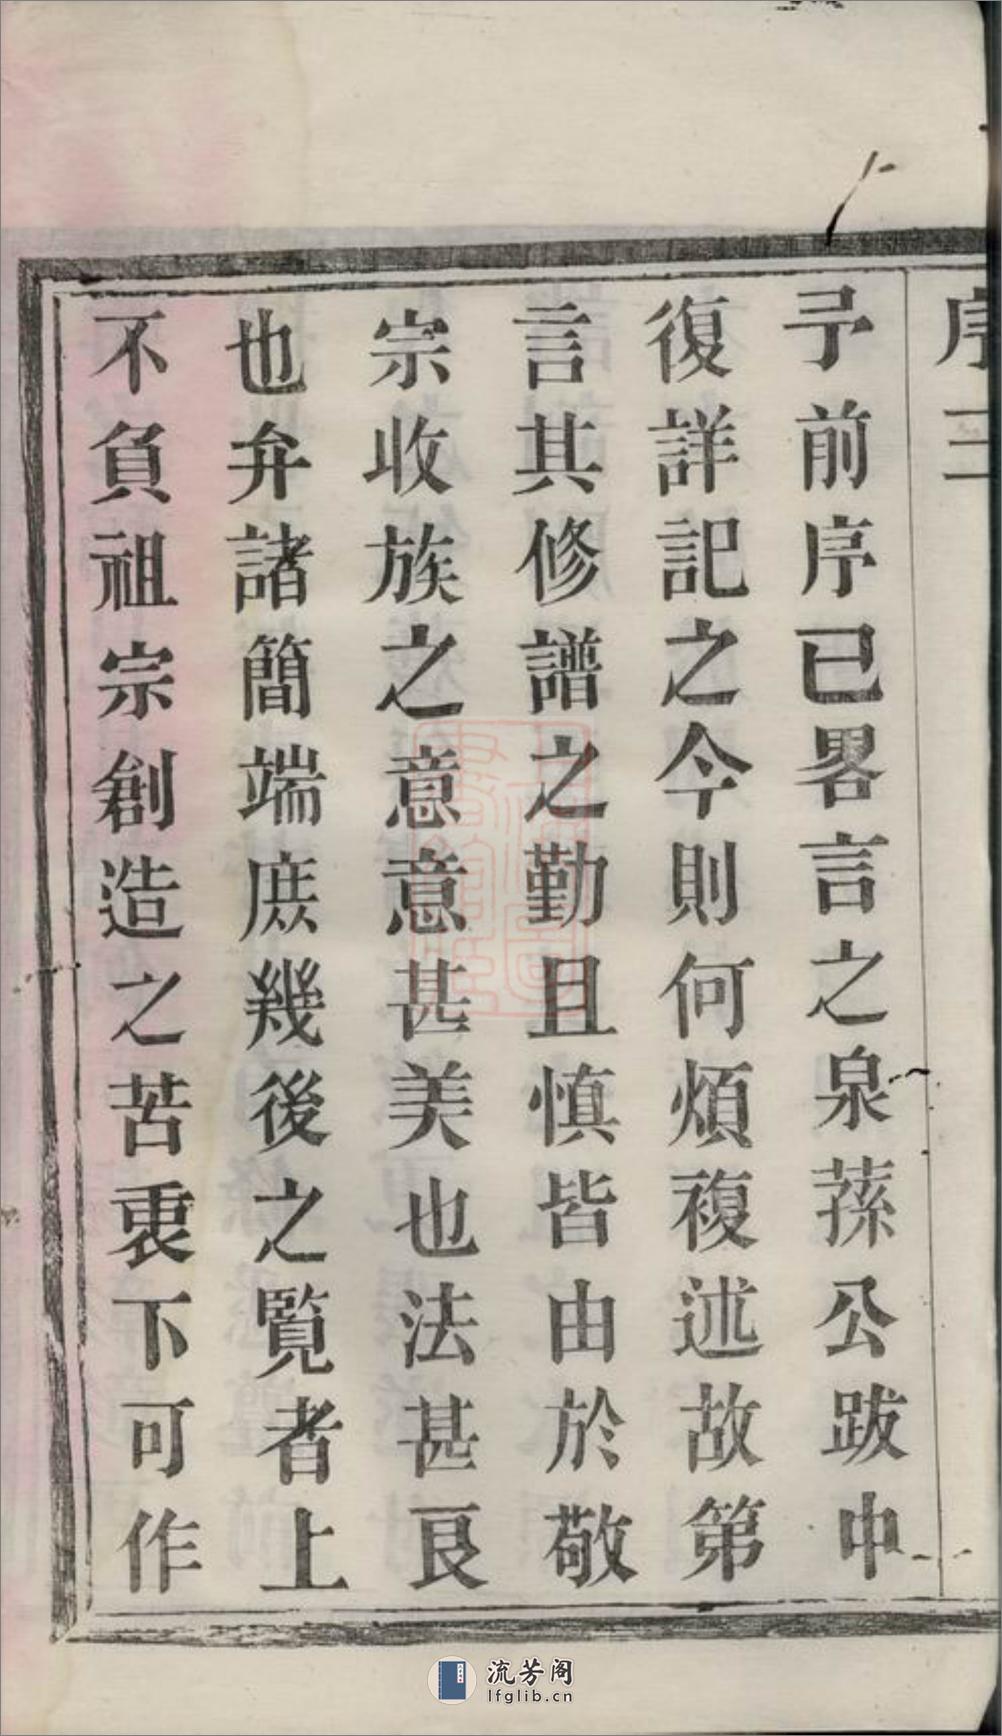 序三
予前序已畧言之泉蓀公跋中
復詳記之今則何煩複述故第
言其修譜之勤且慎皆由於敬
宗收族之意意甚美也法甚良
也弁諸簡端庶幾後之覽者上
不負祖宗創造之苦衷下可作
流芳阁
lfglib.cn